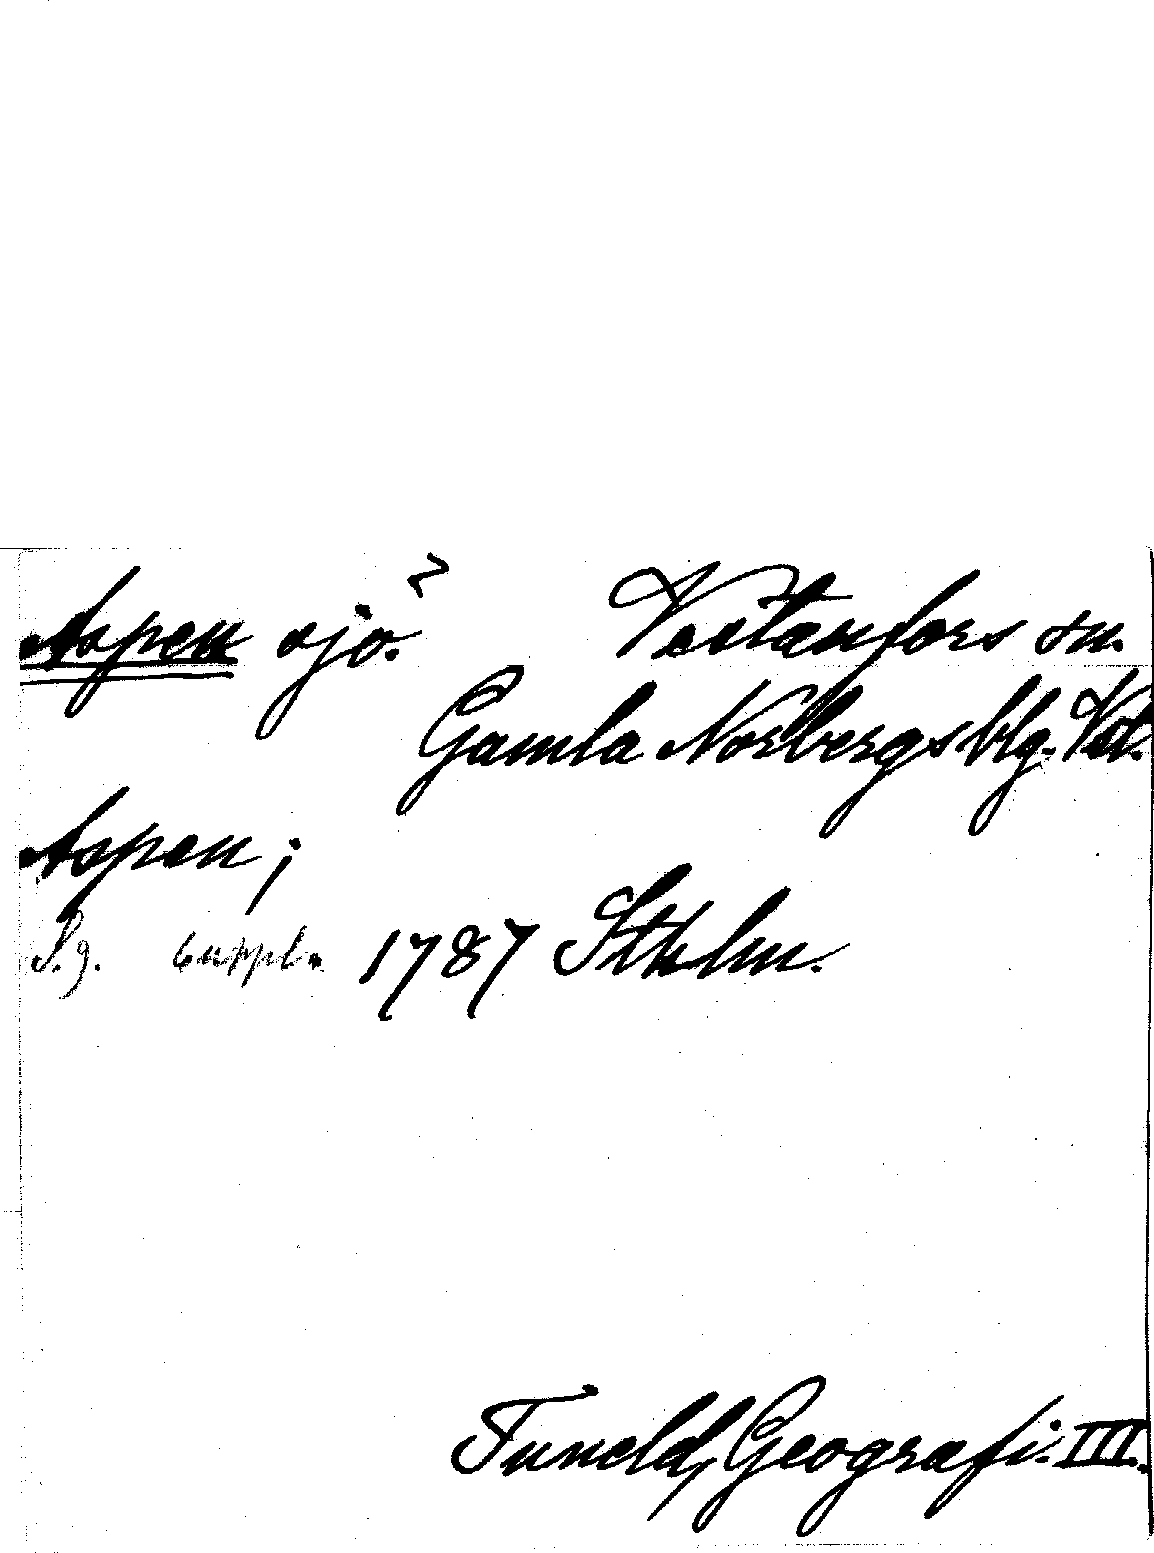 Aspen sjö. Vestanfors sn.
Gamla Norbergs blg. Vstm.
Aspen;
S.g. suppl. 1787 Sthlm.
Tuneld, Geografi. III.